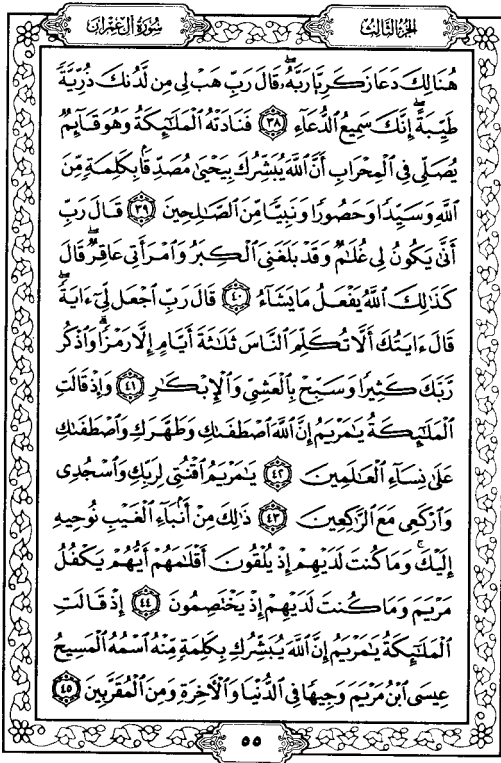 سُورَةُ آلِ عِمْرَانَ
الجُزْءُ الثَّالِثُ
هُنَالِكَ دَعَا زَكَرِيَّا رَبَّهُۥۖ قَالَ رَبِّ هَبْ لِي مِن لَّدُنكَ ذُرِّيَّةً
طَيِّبَةًۖ إِنَّكَ سَمِيعُ الدُّعَآءِ ٣٨ فَنَادَتْهُ الْمَلَٰٓئِكَةُ وَهُوَ قَآئِمٌ
يُصَلِّي فِي الْمِحْرَابِ أَنَّ اللَّهَ يُبَشِّرُكَ بِيَحْيَىٰ مُصَدِّقًۢا بِكَلِمَةٍ مِّنَ
اللَّهِ وَسَيِّدًا وَحَصُورًا وَنَبِيًّا مِّنَ الصَّٰلِحِينَ ٣٩ قَالَ رَبِّ
أَنَّىٰ يَكُونُ لِي غُلَٰمٌ وَقَدْ بَلَغَنِيَ الْكِبَرُ وَامْرَأَتِي عَاقِرٌۖ قَالَ
كَذَٰلِكَ اللَّهُ يَفْعَلُ مَا يَشَآءُ ٤٠ قَالَ رَبِّ اجْعَل لِّيٓ ءَايَةًۖ
قَالَ ءَايَتُكَ أَلَّا تُكَلِّمَ النَّاسَ ثَلَٰثَةَ أَيَّامٍ إِلَّا رَمْزًاۗ وَاذْكُر
رَّبَّكَ كَثِيرًا وَسَبِّحْ بِالْعَشِيِّ وَالْإِبْكَٰرِ ٤١ وَإِذْ قَالَتِ
الْمَلَٰٓئِكَةُ يَٰمَرْيَمُ إِنَّ اللَّهَ اصْطَفَىٰكِ وَطَهَّرَكِ وَاصْطَفَىٰكِ
عَلَىٰ نِسَآءِ الْعَٰلَمِينَ ٤٢ يَٰمَرْيَمُ اقْنُتِي لِرَبِّكِ وَاسْجُدِي
وَارْكَعِي مَعَ الرَّٰكِعِينَ ٤٣ ذَٰلِكَ مِنْ أَنۢبَآءِ الْغَيْبِ نُوحِيهِ
إِلَيْكَۚ وَمَا كُنتَ لَدَيْهِمْ إِذْ يُلْقُونَ أَقْلَٰمَهُمْ أَيُّهُمْ يَكْفُلُ
مَرْيَمَ وَمَا كُنتَ لَدَيْهِمْ إِذْ يَخْتَصِمُونَ ٤٤ إِذْ قَالَتِ
الْمَلَٰٓئِكَةُ يَٰمَرْيَمُ إِنَّ اللَّهَ يُبَشِّرُكِ بِكَلِمَةٍ مِّنْهُ اسْمُهُ الْمَسِيحُ
عِيسَى ابْنُ مَرْيَمَ وَجِيهًا فِي الدُّنْيَا وَالْءَاخِرَةِ وَمِنَ الْمُقَرَّبِينَ ٤٥
٥٥